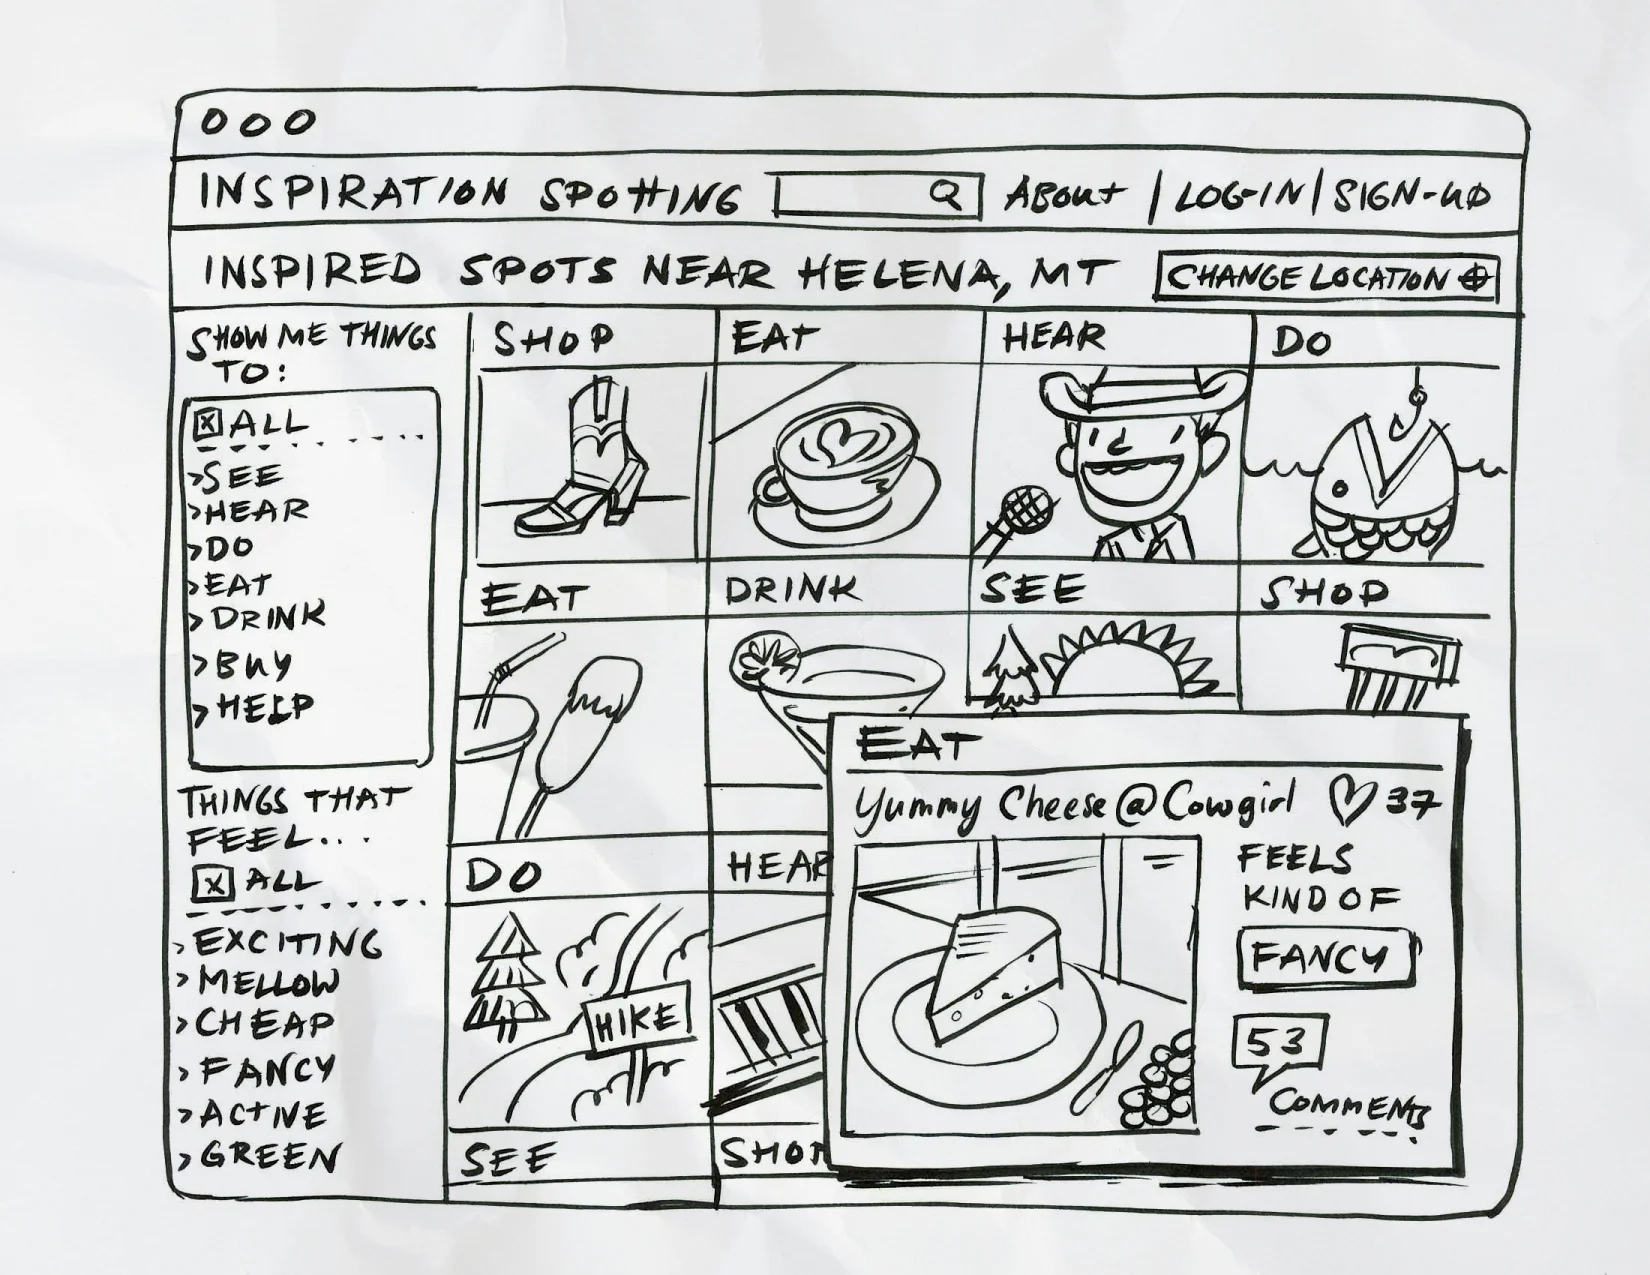 INSPIRATION SPOTTING
ABOUT | LOG-IN | SIGN-UP
INSPIRED SPOTS NEAR HELENA, MT
CHANGE LOCATION
SHOW ME THINGS
TO:
X ALL
>SEE
>HEAR
>DO
>EAT
>DRINK
>BUY
>HELP
THINGS THAT
FEEL...
X ALL
>EXCITING
>MELLOW
>CHEAP
>FANCY
>ACTIVE
>GREEN
SHOP
EAT
HEAR
DO
EAT
DRINK
SEE
SHOP
DO
HEAR
HIKE
SEE
SHOP
EAT
Yummy Cheese @ Cowgirl ♡ 37
FEELS
KIND OF
FANCY
53
COMMENTS